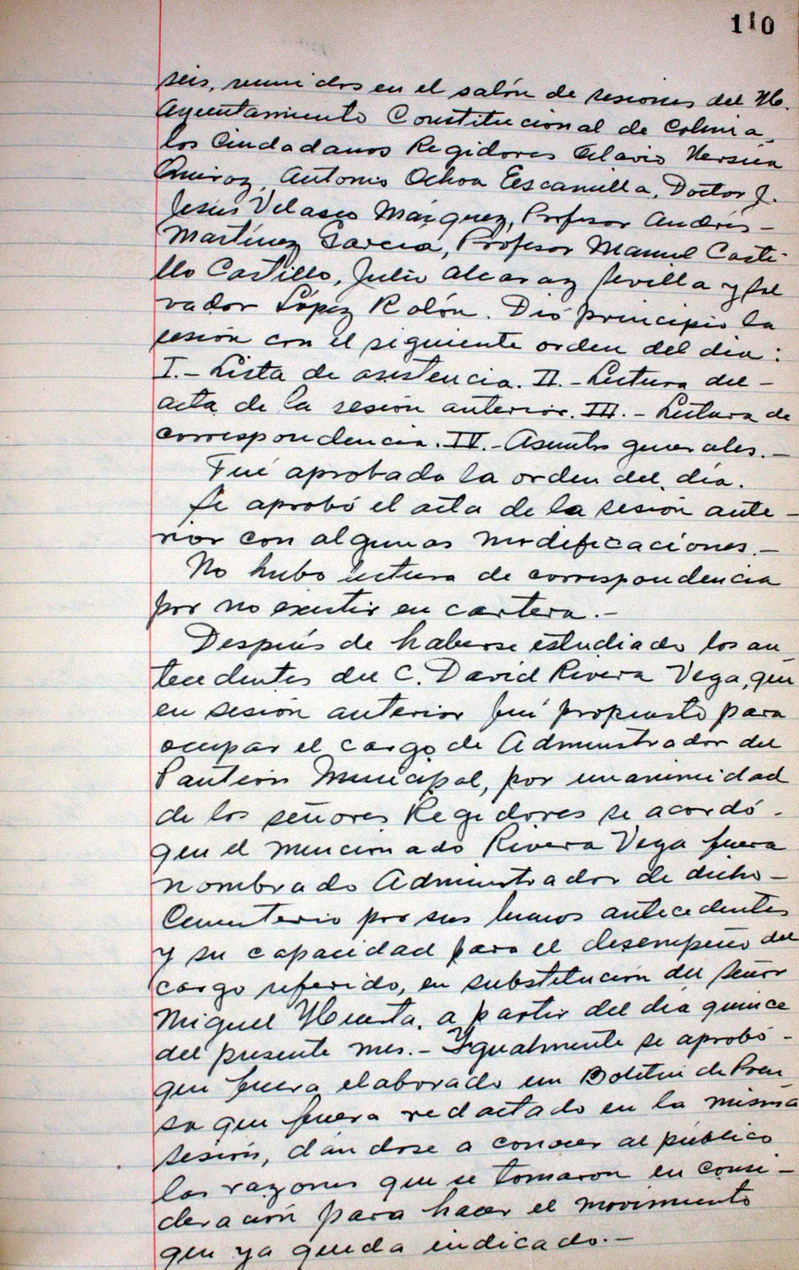 110
seis, reunidos en el salón de sesiones del H.
Ayuntamiento Constitucional de Colima,
los Ciudadanos Regidores
Quiroz, Antonio Ochoa Escamilla, Doctor J.
Jesús Velasco Márquez, Profesor Andrés-
Martínez García, Profesor Manuel Casti-
llo Castillo, Julio Alcaraz Sevilla y Sal
vador López Rolón. Dió principio la
sesión con el siguiente orden del día:
I.- Lista de asistencia. II.- Lectura del-
acta de la sesión anterior. III.- Lectura de
correspondencia. IV.- Asuntos generales.-
Fué aprobada la orden del día.
Se aprobó el acta de la sesión ante-
rior con algunas modificaciones.-
No hubo lectura de correspondencia
por no existir en cartera.-
Después de haberse estudiado los an
tecedentes del C. David Rivera Vega, que
en sesión anterior fué propuesto para
ocupar el cargo de Administrador del
Panteón Municipal, por unanimidad
de los señores Regidores se acordó-
que el mencionado Rivera Vega fuera
nombrado Administrador de dicho-
Cementerio por sus buenos antecedentes
y su capacidad para el desempeño del
cargo referido, en substitución del señor
Miguel Huerta, a partir del día quince
del presente mes.- Ygualmente se aprobó-
que fuera elaborado un Boletin de Pren
sa que fuera redactado en la misma
sesión, dándose a conocer al público
las razones que se tomaron en consi-
deración para hacer el movimiento
que ya queda indicado.-